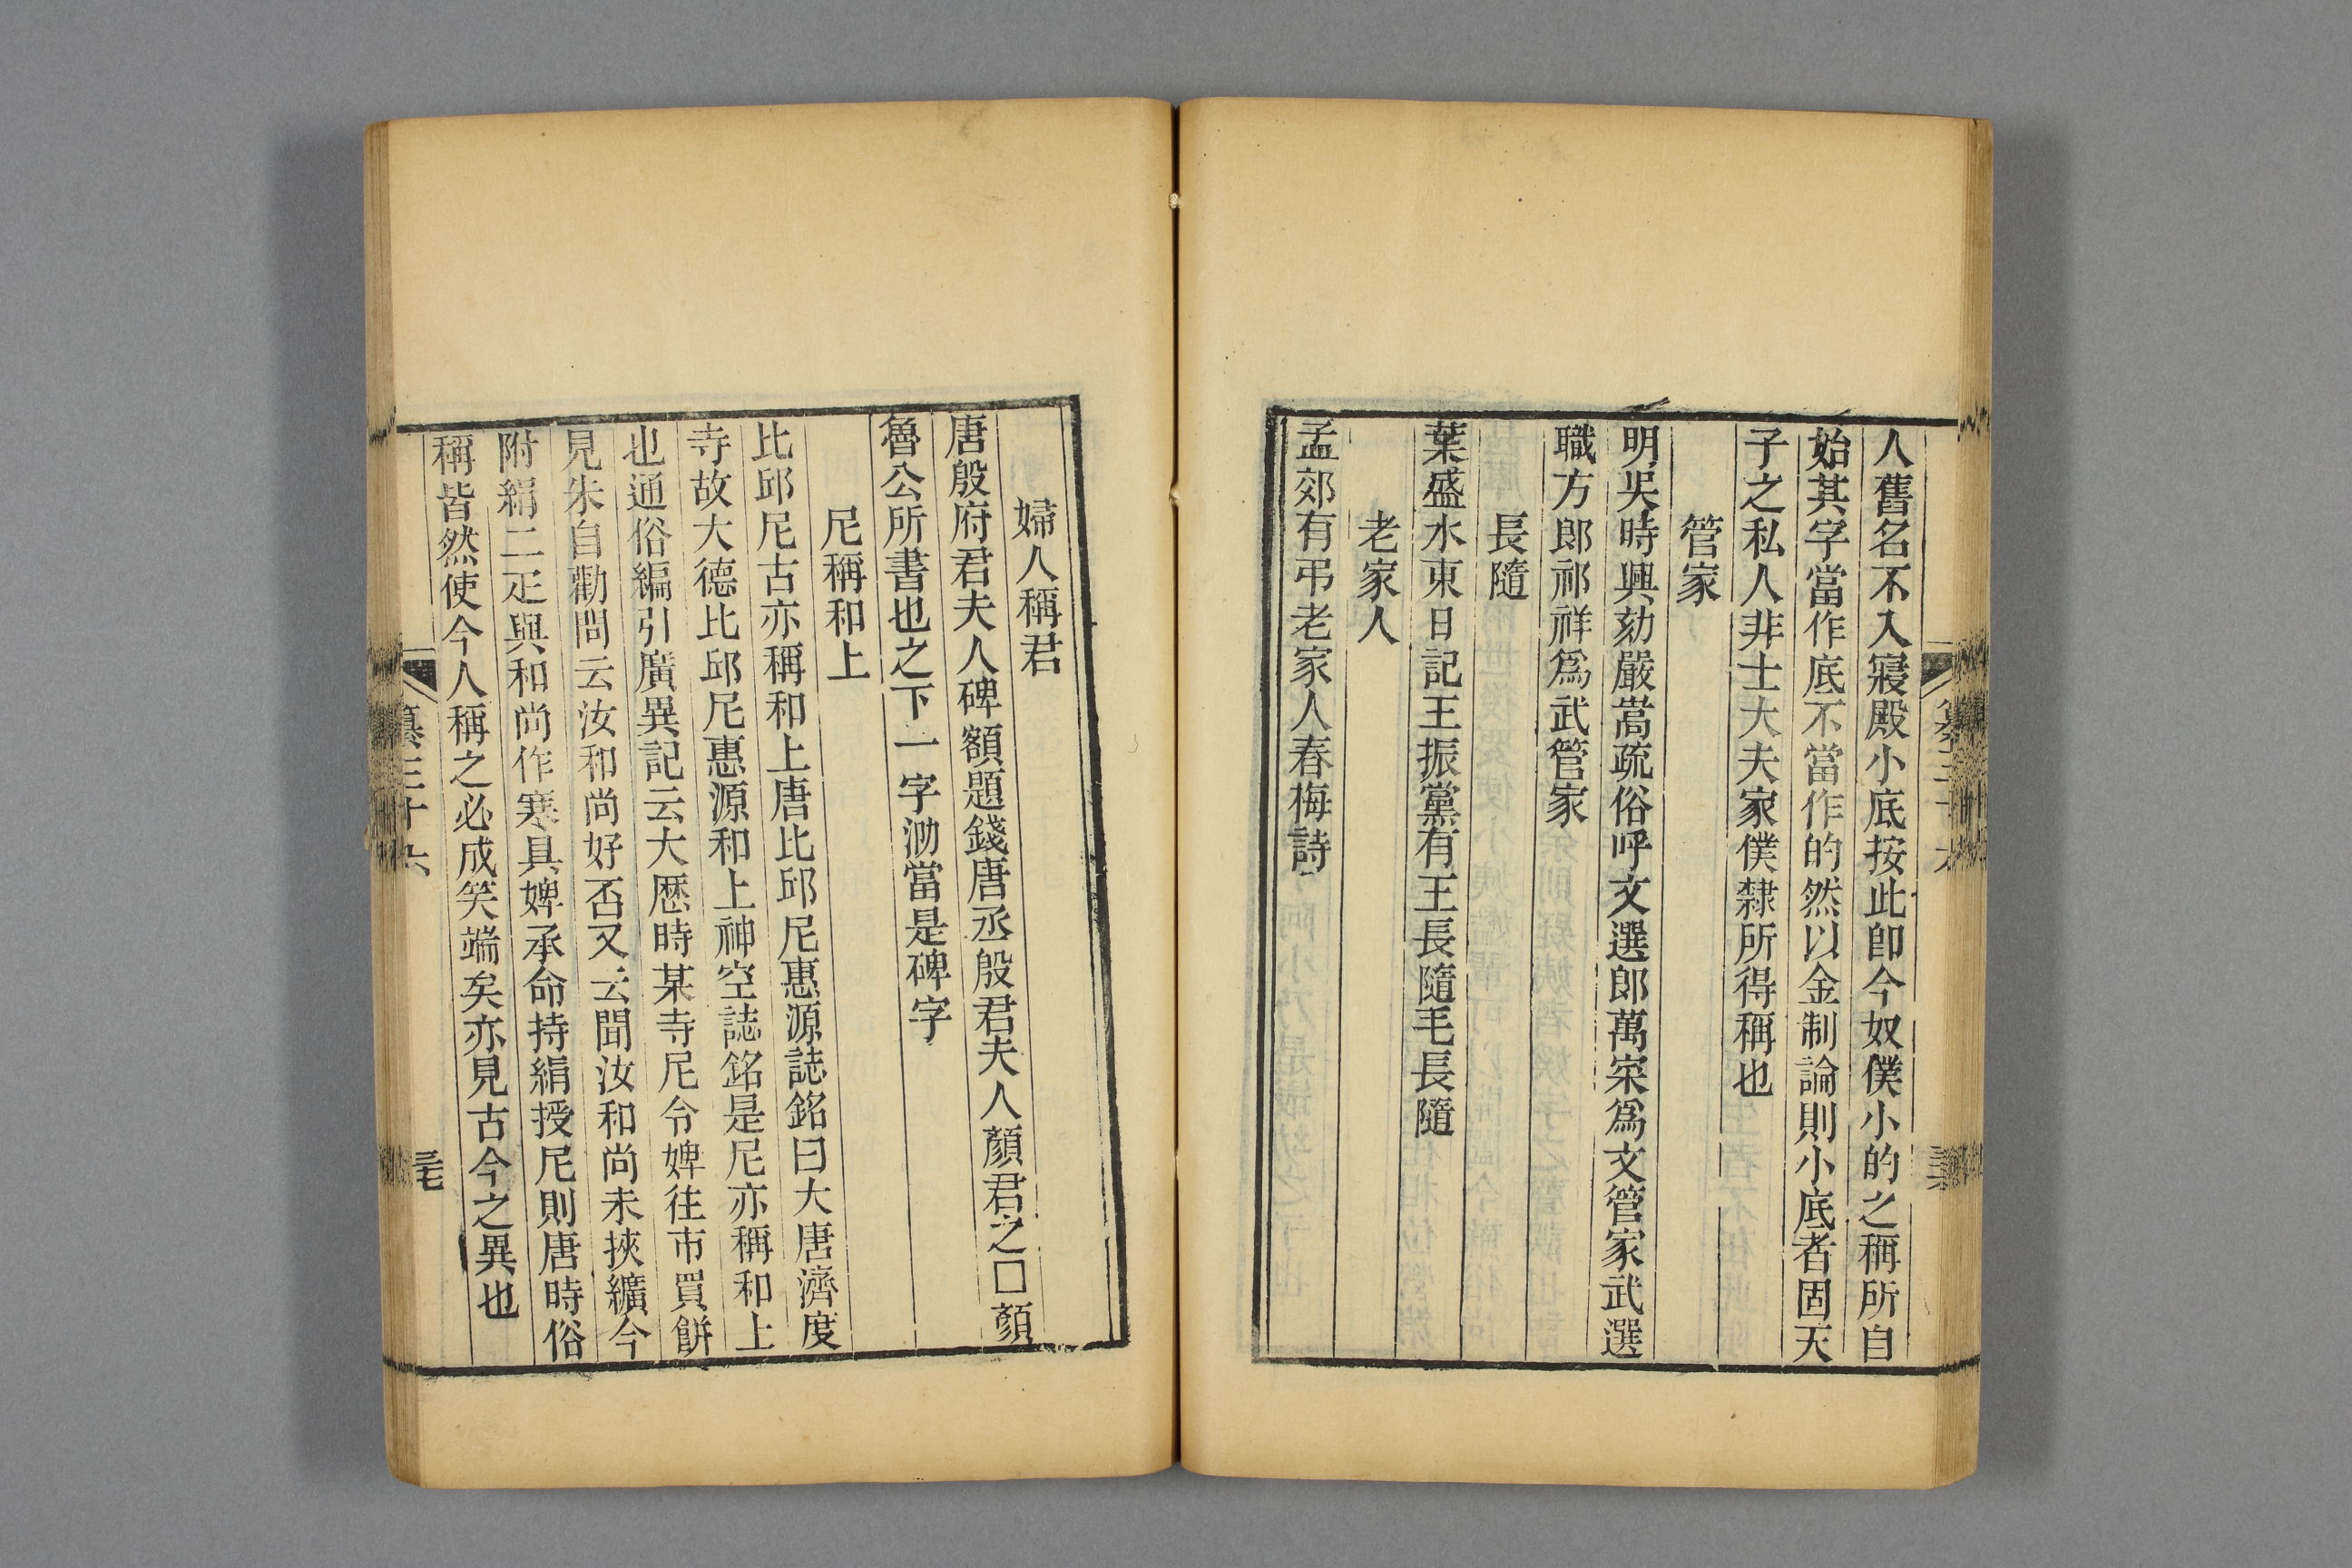 人舊名不入寢殿小底按此卽今奴僕小的之稱所自
始其字當作底不當作的然以金制論則小底者固天
子之私人非士大夫家僕隸所得稱也
管家
明吳時興劾嚴嵩疏俗呼文選郎萬寀爲文管家武選
職方郎祁祥爲武管家
長隨
葉盛水東日記王振黨有王長隨毛長隨
老家人
孟郊有弔老家人春梅詩
婦人稱君
唐殷府君夫人碑額題錢唐丞殷君夫人顏君之□顏
魯公所書也之下一字泐當是碑字
尼稱和上
比邱尼古亦稱和上唐比邱尼惠源誌銘曰大唐濟度
寺故大德比邱尼惠源和上神空誌銘是尼亦稱和上
也通俗編引廣異記云大歷時某寺尼令婢往市買餅
見朱自勸問云汝和尚好否又云聞汝和尚未挾纊今
附絹二疋與和尚作寒具婢承命持絹授尼則唐時俗
稱皆然使今人稱之必成笑端矣亦見古今之異也
纂三十六
毛